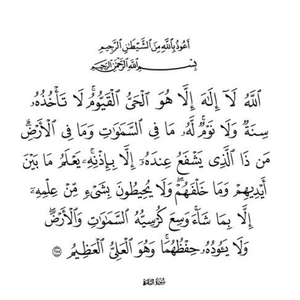 أَعُوذُ بِاللَّهِ مِنَ الشَّيْطَٰنِ الرَّجِيمِ
بِسْمِ ٱللَّهِ ٱلرَّحْمَٰنِ ٱلرَّحِيمِ
ٱللَّهُ لَآ إِلَٰهَ إِلَّا هُوَ ٱلْحَىُّ ٱلْقَيُّومُ ۚ لَا تَأْخُذُهُۥ
سِنَةٌ وَلَا نَوْمٌ ۚ لَّهُۥ مَا فِى ٱلسَّمَٰوَٰتِ وَمَا فِى ٱلْأَرْضِ ۗ
مَن ذَا ٱلَّذِى يَشْفَعُ عِندَهُۥٓ إِلَّا بِإِذْنِهِۦ ۚ يَعْلَمُ مَا بَيْنَ
أَيْدِيهِمْ وَمَا خَلْفَهُمْ ۖ وَلَا يُحِيطُونَ بِشَىْءٍ مِّنْ عِلْمِهِۦٓ
إِلَّا بِمَا شَآءَ ۚ وَسِعَ كُرْسِيُّهُ ٱلسَّمَٰوَٰتِ وَٱلْأَرْضَ ۖ
وَلَا يَـُٔودُهُۥ حِفْظُهُمَا ۚ وَهُوَ ٱلْعَلِىُّ ٱلْعَظِيمُ ۝٢٥٥